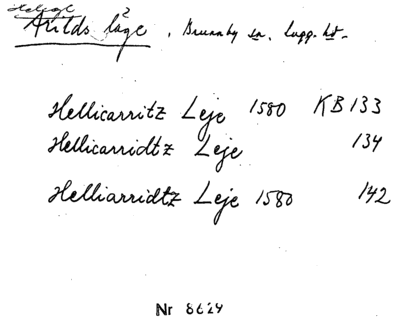 Helegl
Arilds läge, Brunnby sn. Lugg. hd.
Hellicarritz Leje 1580 KB 133
Hellicarridtz Leje 134
Helliarridtz Leje 1580 142
Nr 8624